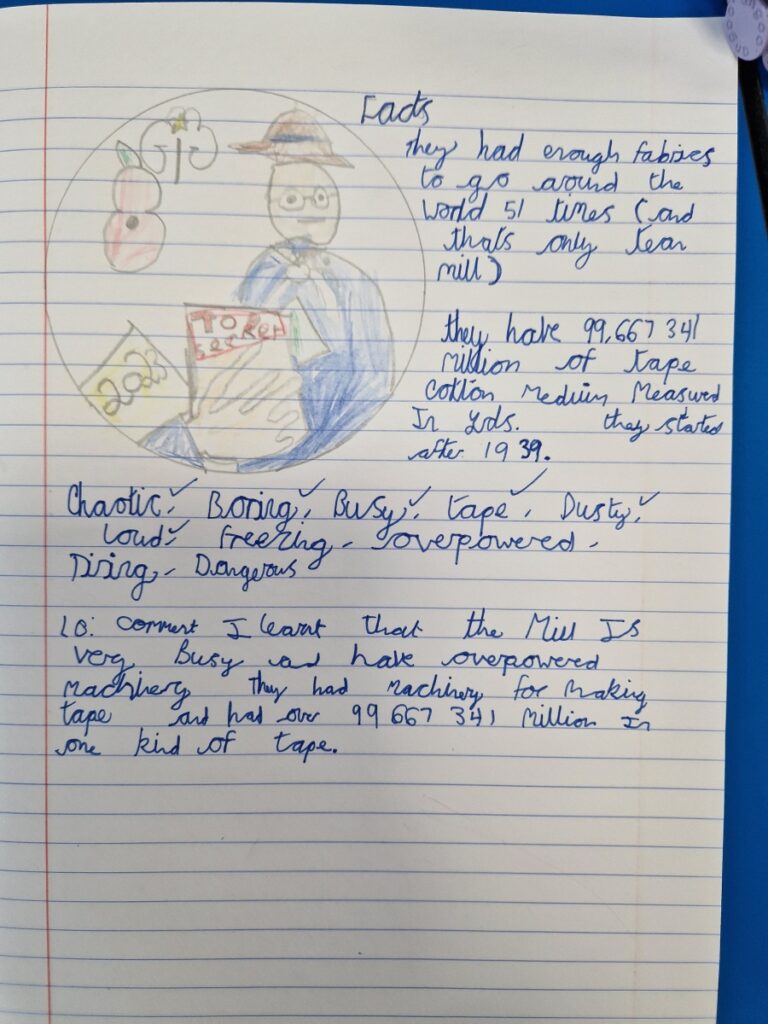 Facts
They had enough fabixes
to go around the
world 51 times (and
thats only tean
mill)
they have 99,667 341
million of tape
cotton Medium Measured
In yds. they started
after 1939.
TOP
SECRET
2023
Chaotic, Boring, Busy, tape, Dusty,
Loud, Freezing, overpowered,
Tiring, Dangerous
LO: comment I learnt that the Mill Is
very Busy and have overpowered
machinery They had Machinery for Making
tape and had over 99 667 341 Million In
one kind of tape.